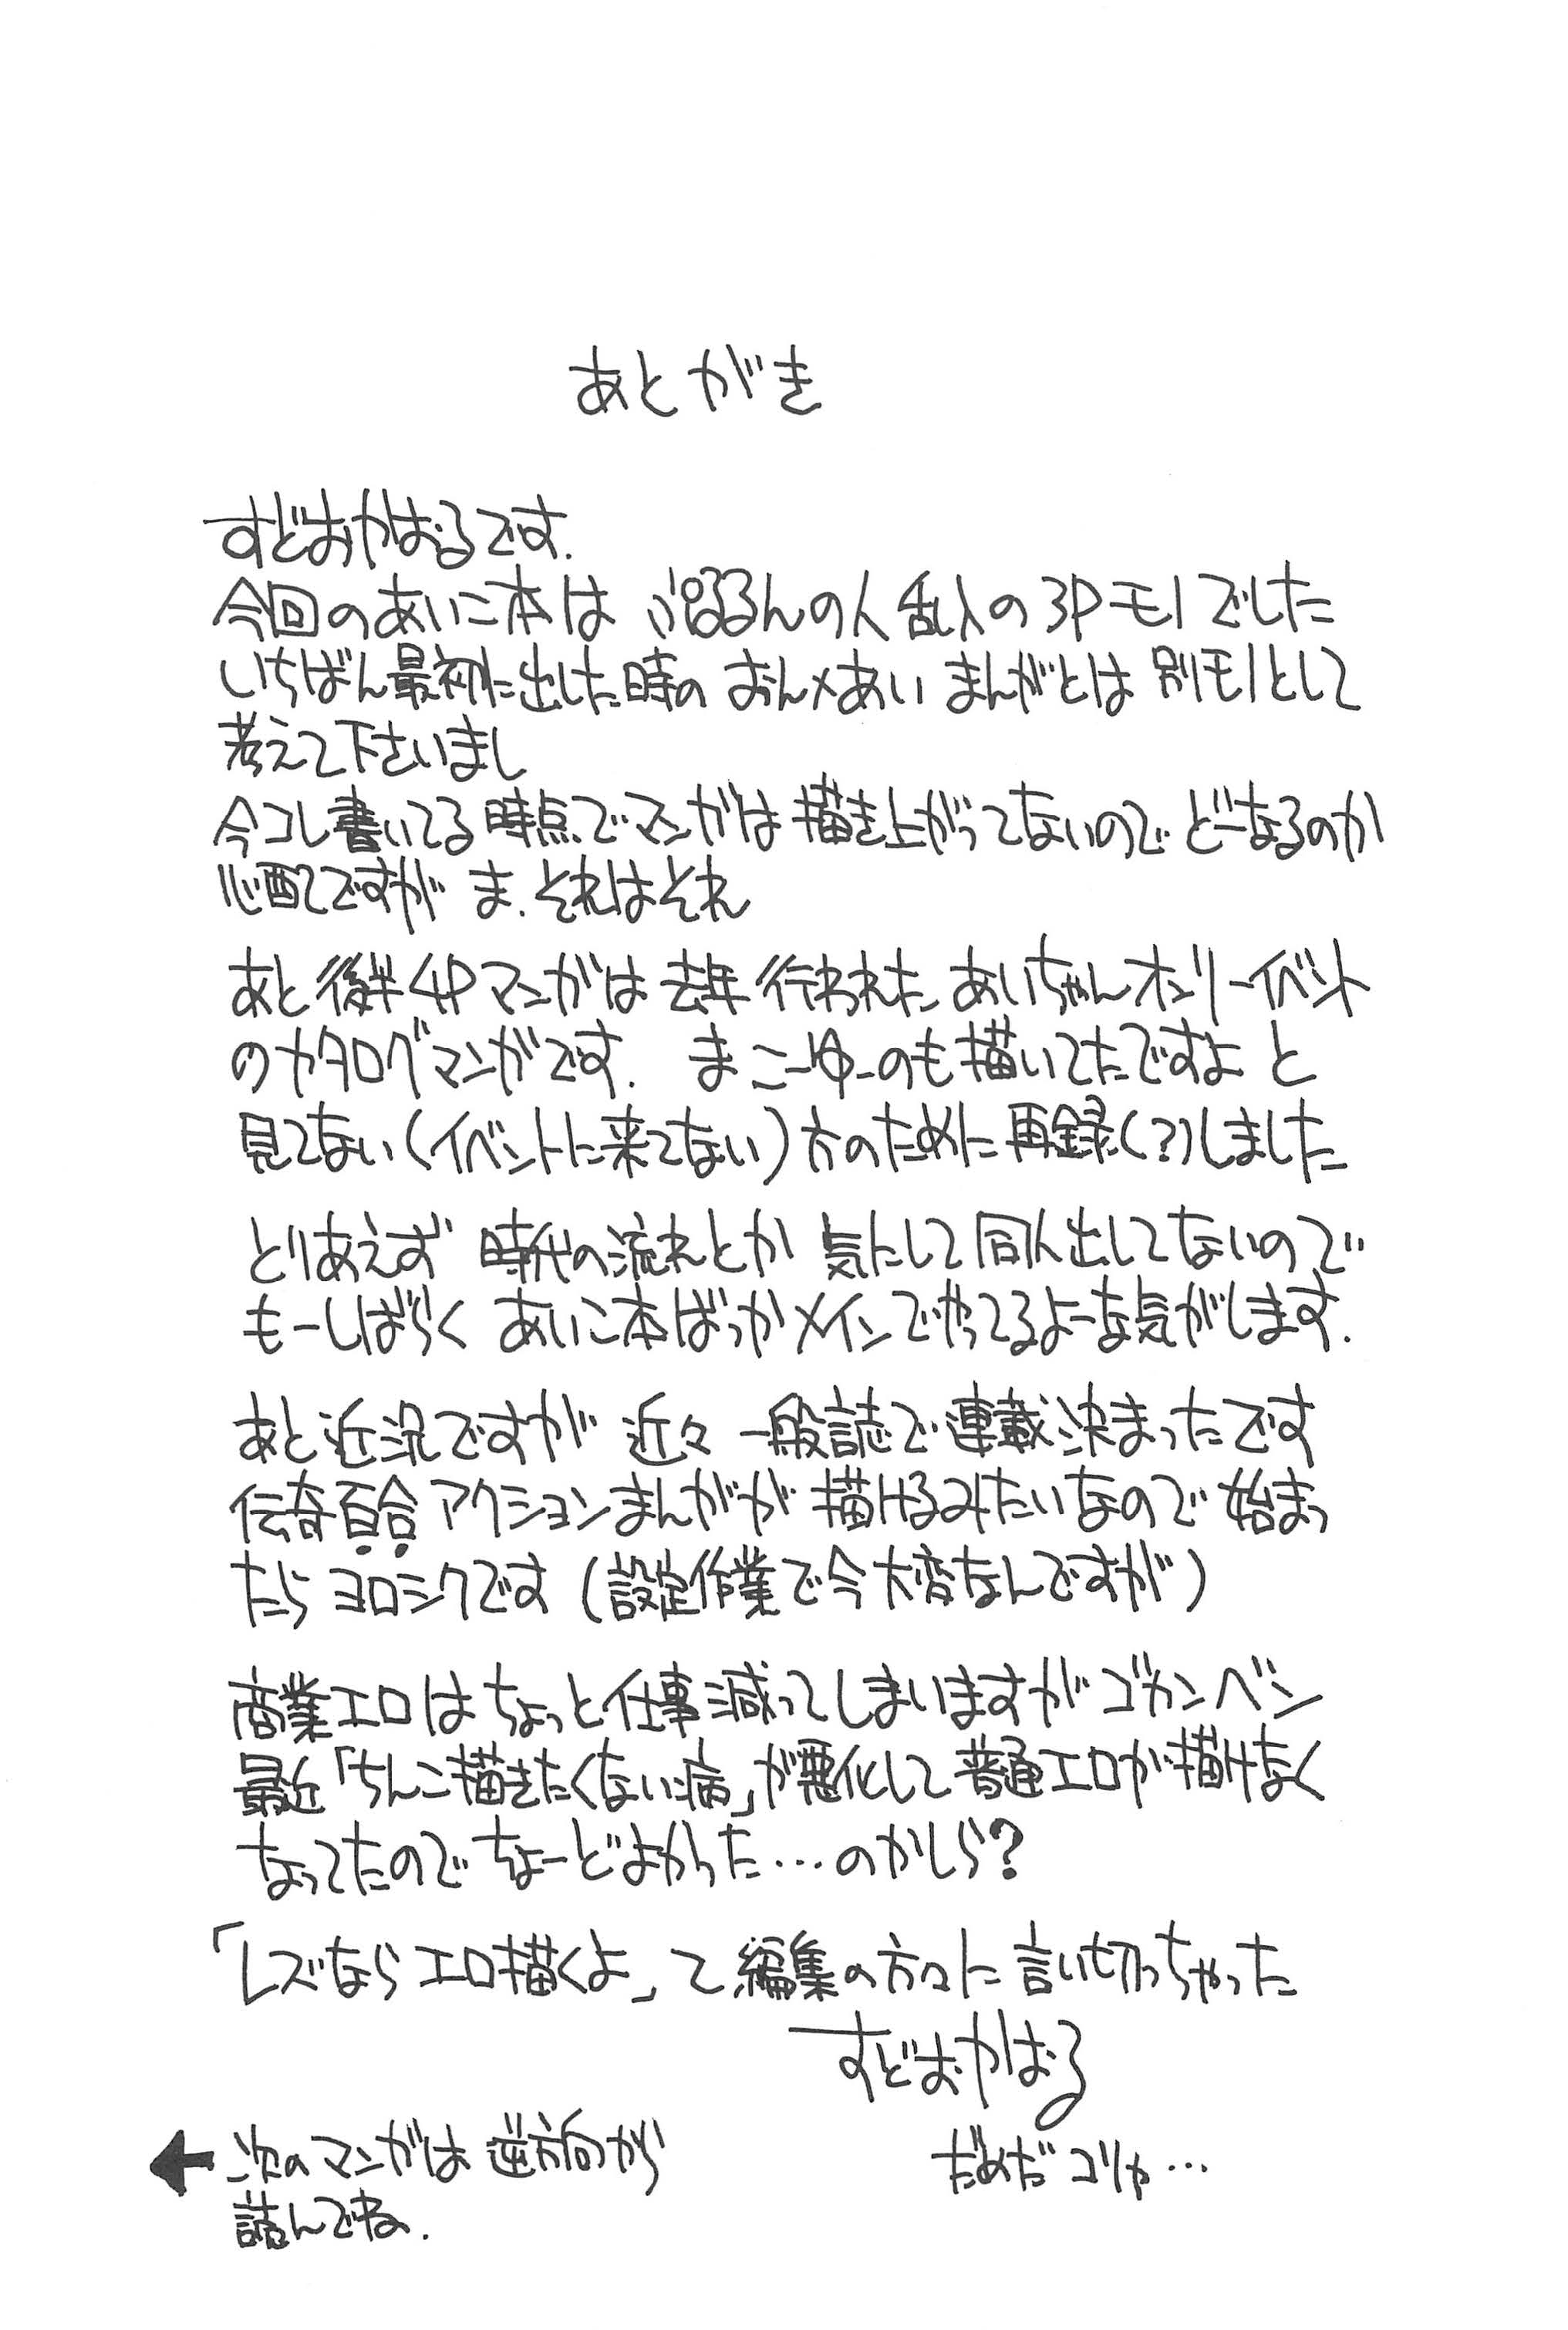 あとがき
すどおかおるです.
今回のあいこ本は ぷるるんの人乱入の3Pモノでした
いちばん最初に出した時の おん×あい まんがとは 別モノとして
考えて下さいまし
今コレ書いてる時点でマンガは描き上がってないので どーなるのか
心配ですが ま、それはそれ
あと後半4Pマンガは去年行われた あいちゃんオンリーイベント
のカタログマンガです. まこーゆーのも描いてたですよ と
見てない(イベントに来てない)方のために再録(?)しました
とりあえず 時代の流れとか 気にして同人出してないので
もーしばらく あいこ本ばっかメインでやってるよーな気がします.
あと近況ですが 近々 一般誌で連載決まったです
伝奇百合アクションまんがが描けるみたいなので始まっ
たら ヨロシクです (設定作業で今大変なんですが)
商業エロはちょっと仕事減ってしまいますがゴカンベン
最近「ちんこ描きたくない病」が悪化して普通エロが描けなく
なってたので ちょーどよかった…のかしら?
「レズならエロ描くよ」て編集の方々に言い切っちゃった
すどおかおる
だめだコリャ…
← 次のマンガは逆方向から
読んでね.